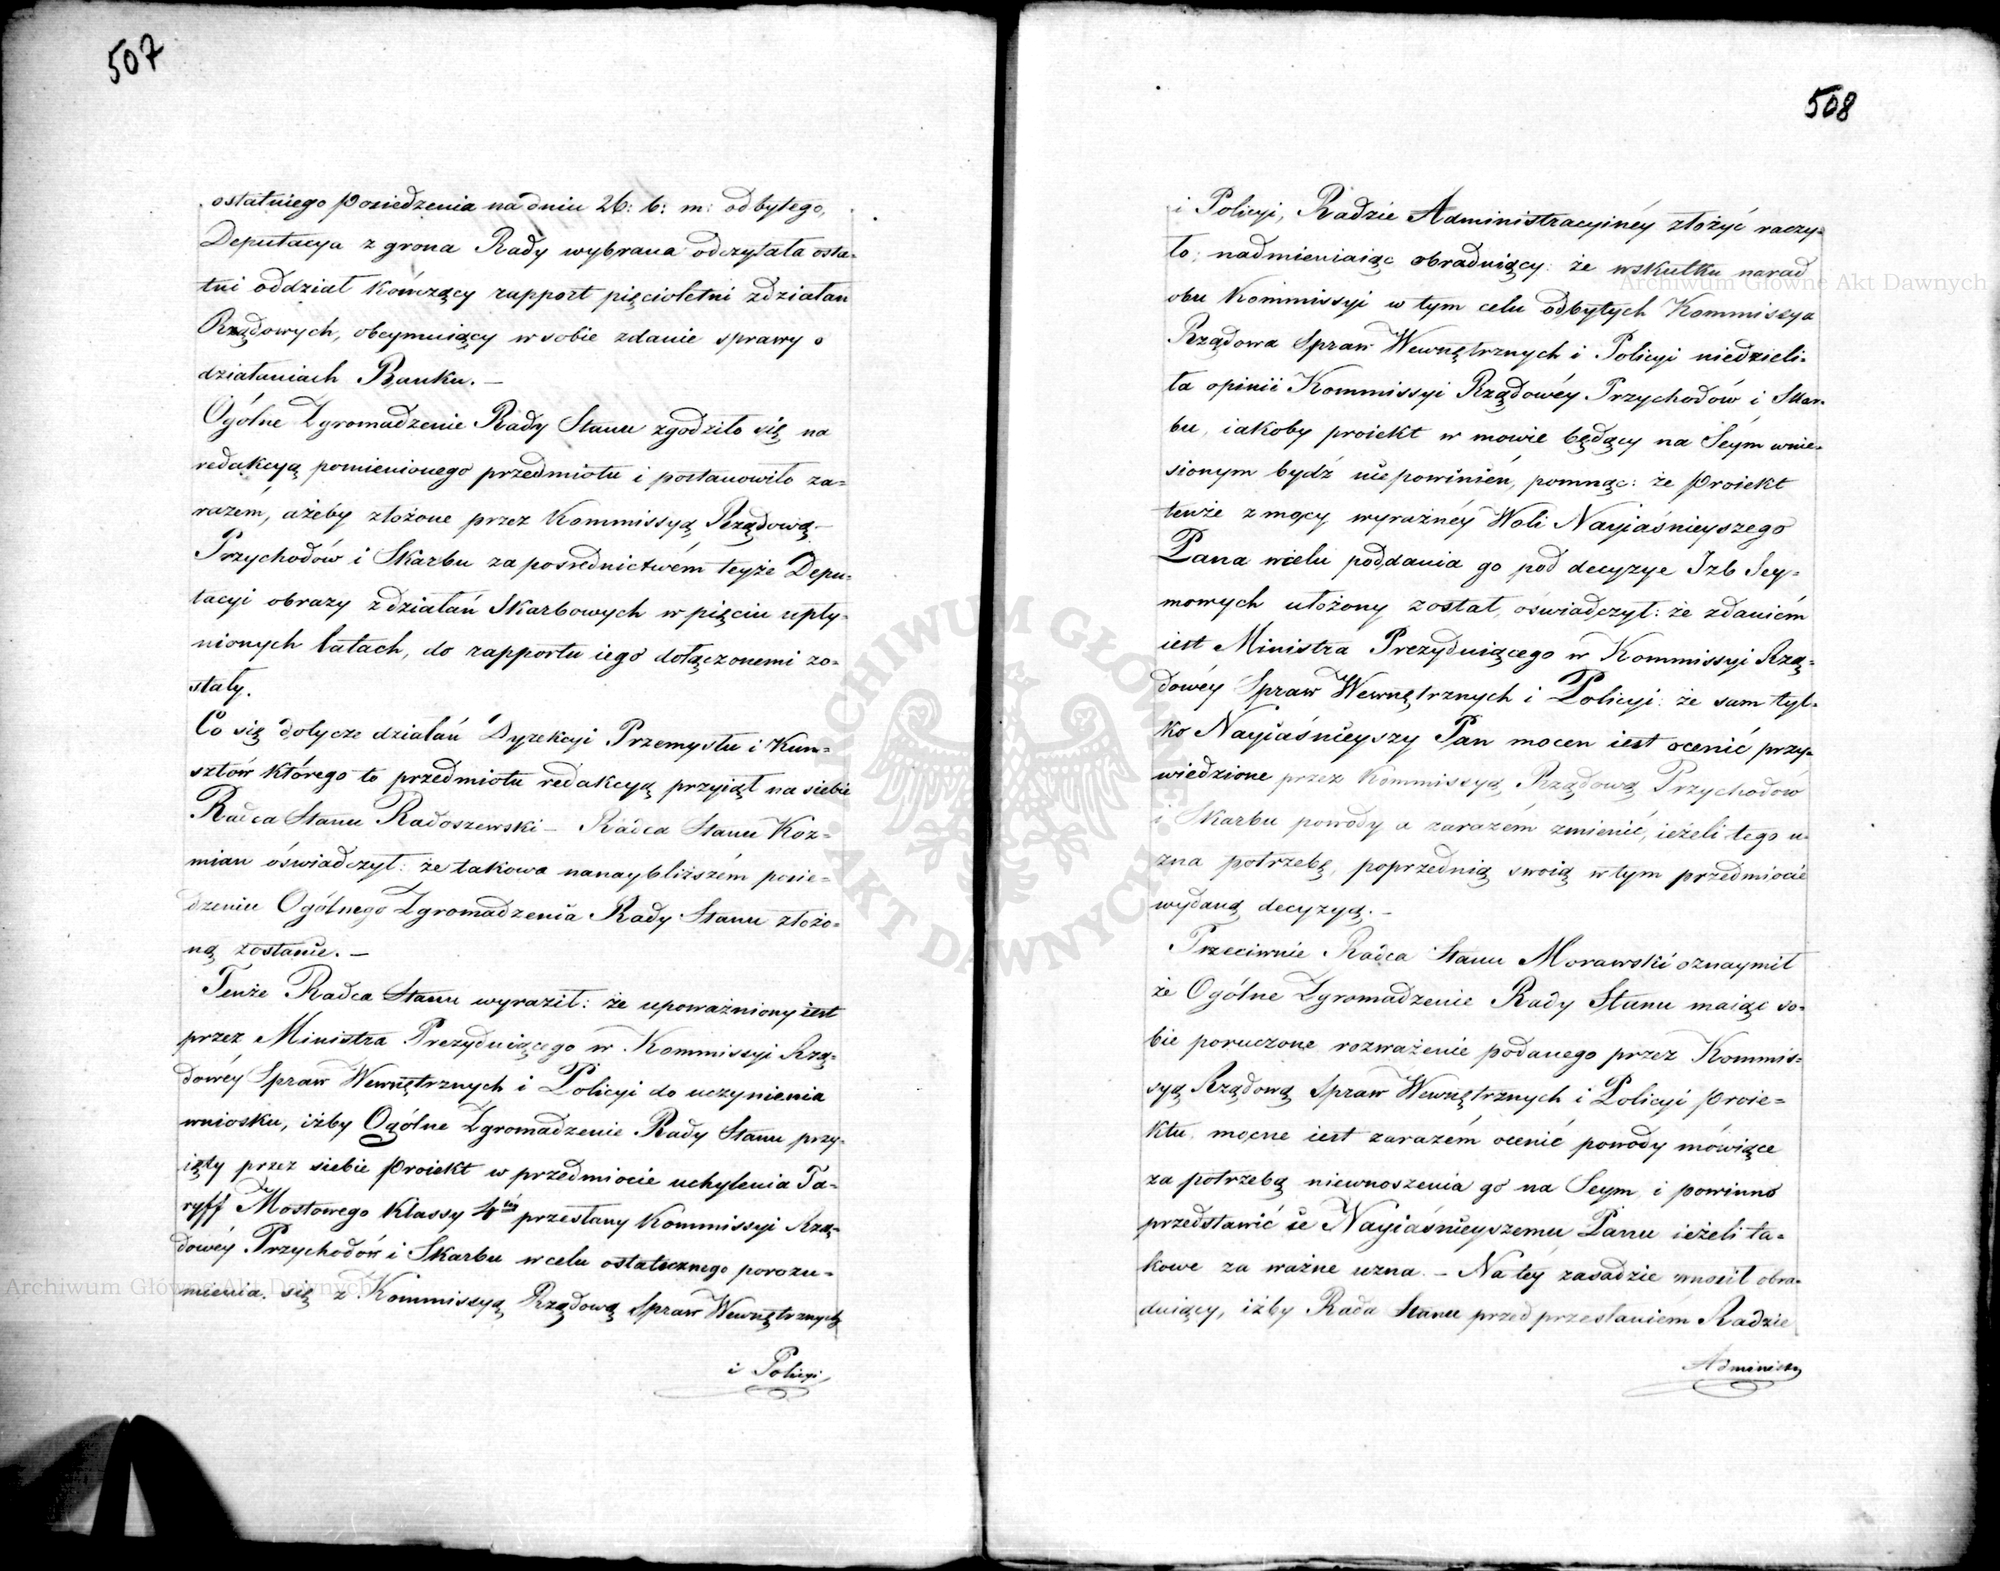 507
ostatniego Posiedzenia na dniu 26: b: m: odbytego,
Deputacya z grona Rady wybrana odczytała osta-
tni oddział kończący rapport pięcioletni z działań
Rządowych, obeymuiący w sobie zdanie sprawy o
działaniach Banku. —
Ogólne Zgromadzenie Rady Stanu zgodziło się na
redakcyą pomienionego przedmiotu i postanowiło za-
razém, ażeby złożone przez Kommissyą Rządową
Przychodów i Skarbu za pośrednictwém teyże Depu-
tacyi obrazy z działań Skarbowych w pięciu upły-
nionych latach, do rapportu iego dołączonemi zo-
stały.
Co się dotycze działań Dyrekcyi Przemysłu i Kun-
sztów którego to przedmiotu redakcyą przyiął na siebie
Radca Stanu Radoszewski — Radca Stanu Koź-
mian oświadczył: że takowa na naybliższém posie-
dzeniu Ogólnego Zgromadzenia Rady Stanu złożo-
ną zostanie. —
Tenże Radca Stanu wyraził: że upoważniony iest
przez Ministra Prezyduiącego w Kommissyi Rzą-
dowéy Spraw Wewnętrznych i Policyi do uczynienia
wniosku, iżby Ogólne Zgromadzenie Rady Stanu przy-
ięty przez siebie Proiekt w przedmiocie uchylenia Ta-
ryff Mostowego Klassy 4téy przesłany Kommissyi Rzą-
dowéy Przychodów i Skarbu w celu ostatecznego porozu-
mienia się z Kommissyą Rządową Spraw Wewnętrznych
i Policyi,
508
i Policyi, Radzie Administracyinéy złożyć raczy-
ło; nadmieniaiąc obraduiący: że wskutku narad
obu Kommissyi w tym celu odbytych Kommissya
Rządowa Spraw Wewnętrznych i Policyi niedzieli-
ła opinii Kommissyi Rządowéy Przychodów i Skar-
bu, iakoby proiekt w mowie będący na Seym wnie-
sionym bydź niepowinien, pomnąc: że Proiekt
tenże z mocy wyraźnéy Woli Nayiaśnieyszego
Pana w celu poddania go pod decyzye Izb Sey-
mowych ułożony został, oświadczył: że zdaniém
iest Ministra Prezyduiącego w Kommissyi Rzą-
dowéy Spraw Wewnętrznych i Policyi: że sam tyl-
ko Nayiaśnieyszy Pan mocen iest ocenić przy-
wiedzione przez Kommissyą Rządową Przychodów
i Skarbu powody a zarazém zmienić, ieżeli tego u-
zna potrzebę, poprzednią swoią w tym przedmiocie
wydaną decyzyą. —
Przeciwnie Radca Stanu Morawski oznaymił
że Ogólne Zgromadzenie Rady Stanu maiąc so-
bie poruczone rozważenie podanego przez Kommis-
syą Rządową Spraw Wewnętrznych i Policyi Proie-
ktu, mocne iest zarazém ocenić powody mówiące
za potrzebą niewnoszenia go na Seym i powinno
przedstawić ie Nayiaśnieyszemu Panu ieżeli ta-
kowe za ważne uzna. — Na téy zasadzie wnosił obra-
duiący, iżby Rada Stanu przed przesłaniém Radzie
Administr.
Archiwum Główne Akt Dawnych
Archiwum Główne Akt Dawnych
ARCHIWUM GŁÓWNE AKT DAWNYCH